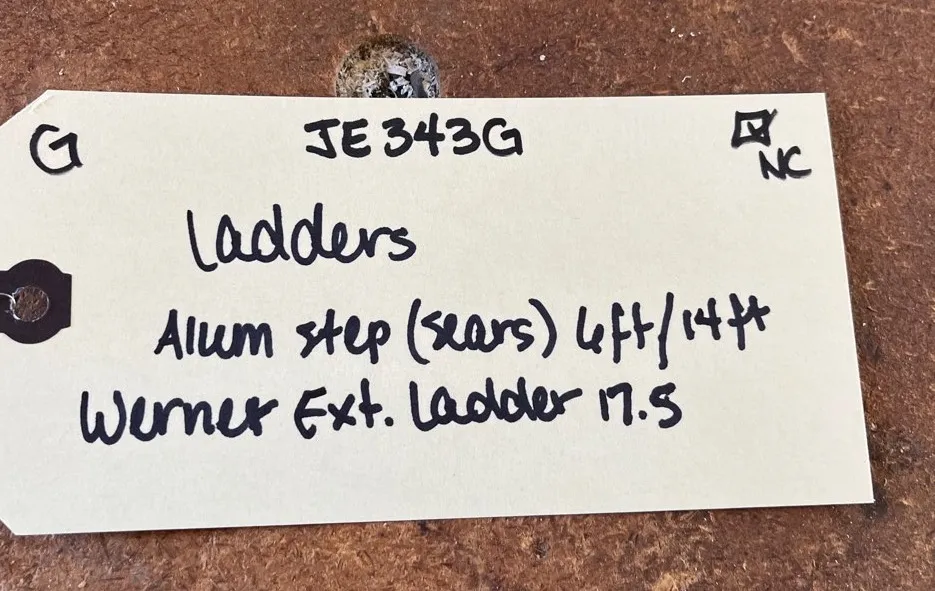 G JE343G ☑
NC
Ladders
Alum step (sears) 6ft/14ft
Werner Ext. Ladder 17.5